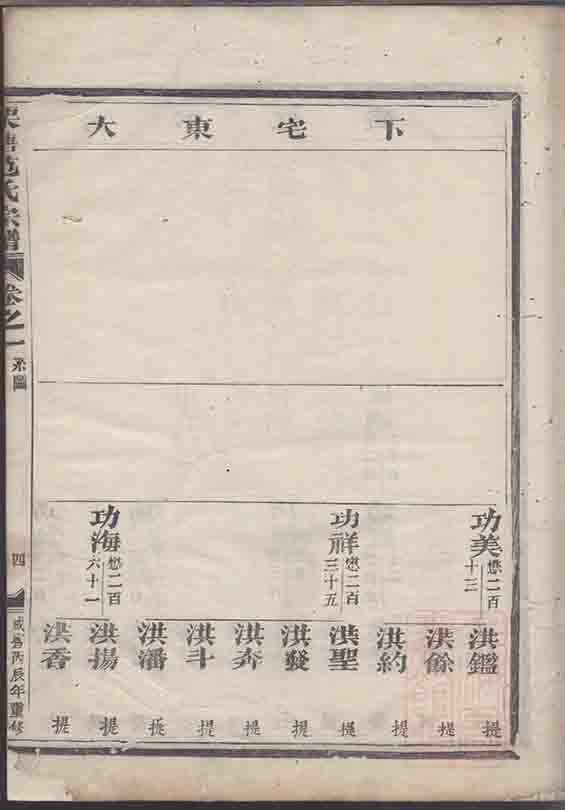 下宅東大
功美
懋二百
十三
功祥
懋二百
三十五
功海
懋二百
六十一
洪鑑 提
洪餘 提
洪約 提
洪聖 提
洪發 提
洪奔 提
洪斗 提
洪潘 提
洪揚 提
洪香 提
范氏宗譜 卷之一 系圖 四 咸豐丙辰年重修